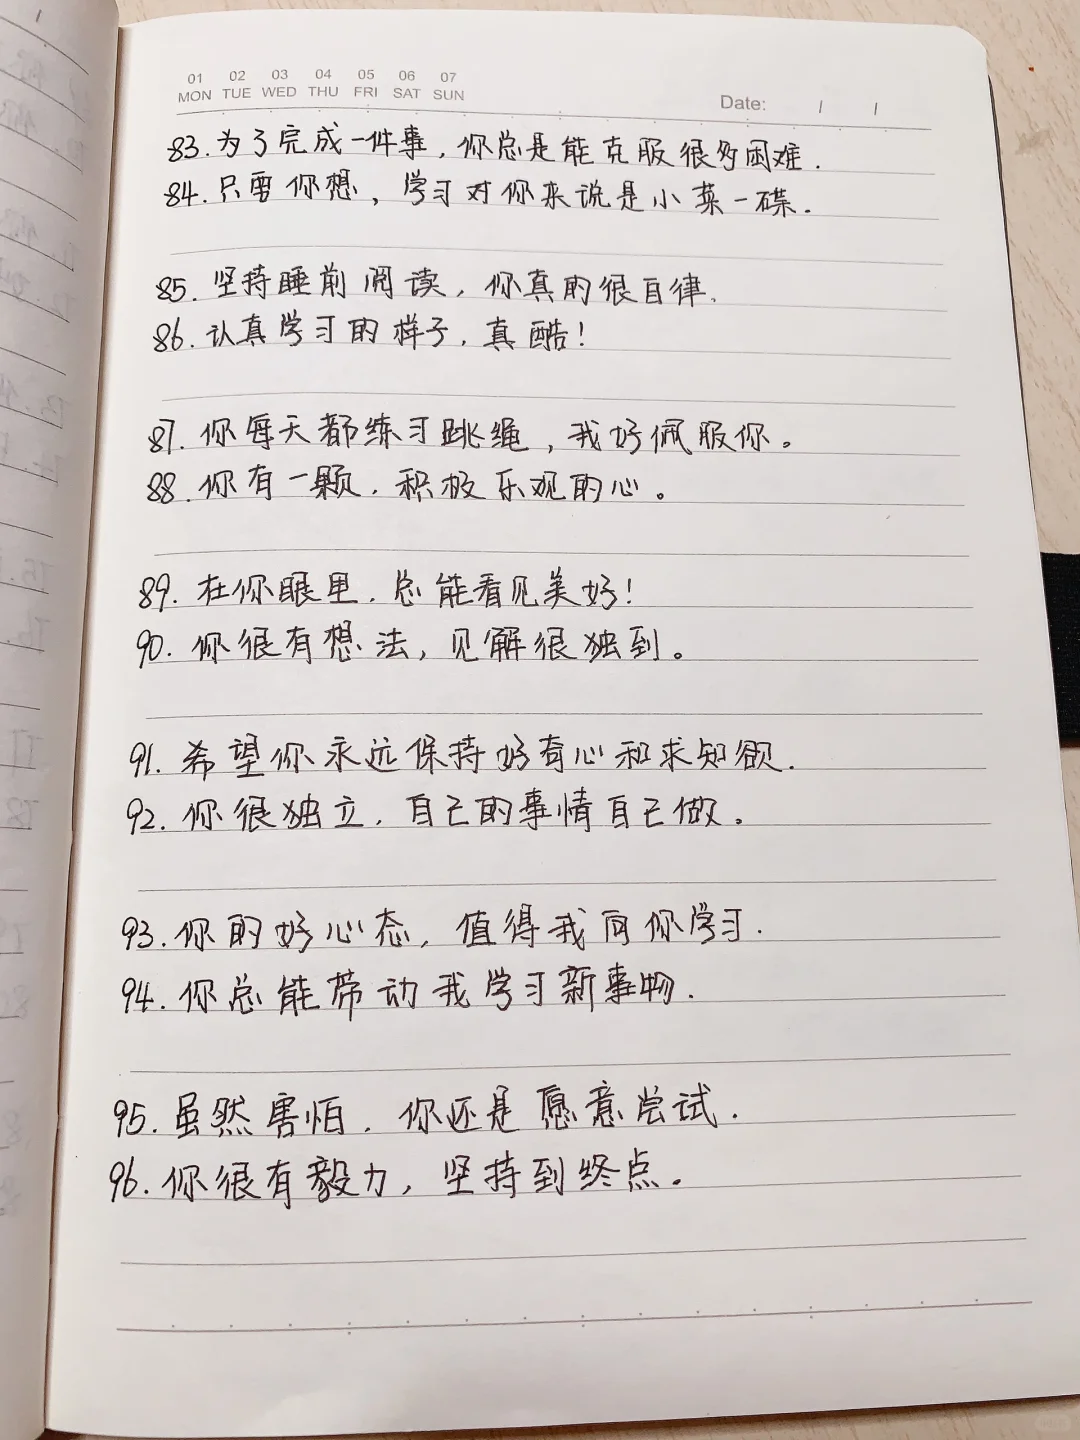 01 02 03 04 05 06 07
MON TUE WED THU FRI SAT SUN
Date: / /
83.为了完成一件事,你总是能克服很多困难.
84.只要你想,学习对你来说是小菜一碟.
85.坚持睡前阅读,你真的很自律.
86.认真学习的样子,真酷!
87.你每天都练习跳绳,我好佩服你。
88.你有一颗,积极乐观的心。
89.在你眼里,总能看见美好!
90.你很有想法,见解很独到。
91.希望你永远保持好奇心和求知欲.
92.你很独立,自己的事情自己做。
93.你的好心态,值得我向你学习.
94.你总能带动我学习新事物.
95.虽然害怕,你还是愿意尝试.
96.你很有毅力,坚持到终点。